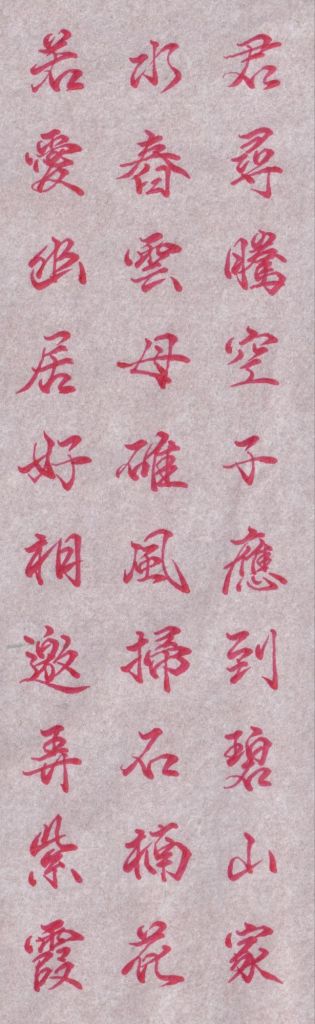 君尋騰空子應到碧山家
水舂雲母碓風掃石楠花
若愛幽居好相邀弄紫霞